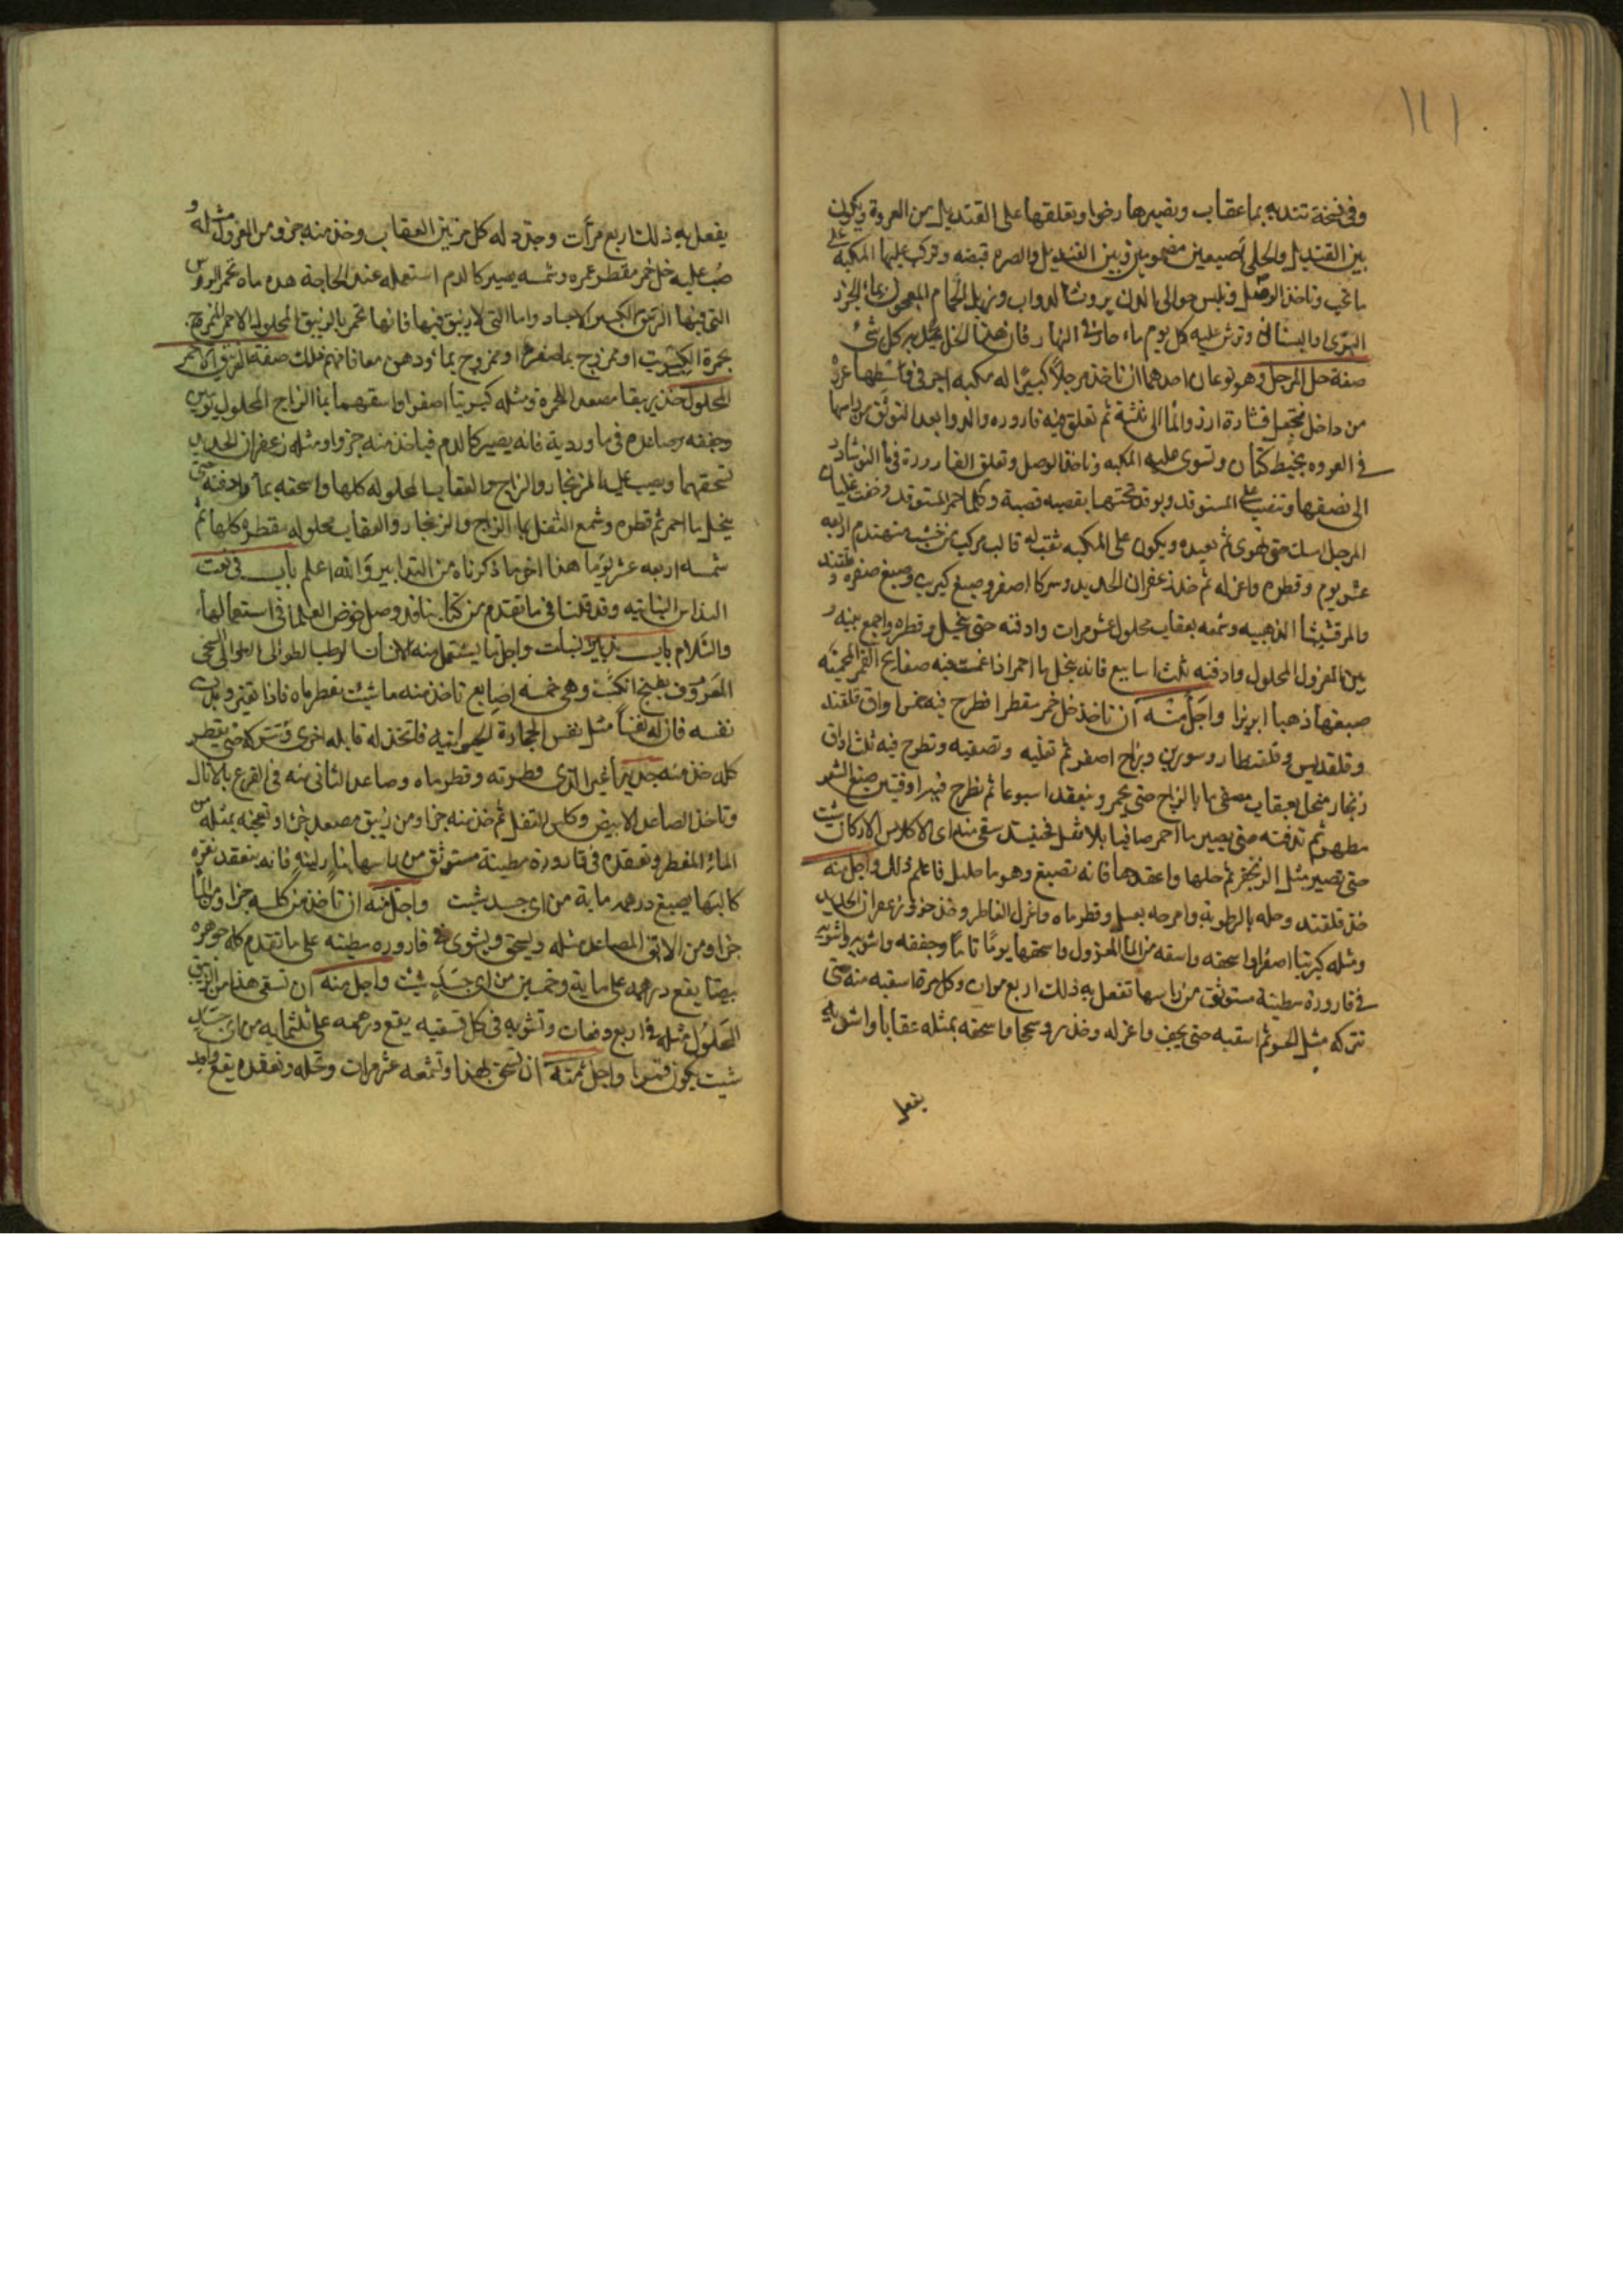 ١١١
وفي نسخة تنديه بما عقاب وتصيرها رخوا وتعلقها على القنديل من العروة ويكون
بين القنديل والحلى اصبعين مضمومين وبين القنديل والصره قبضه وتركب عليها المكبه على
ما يجب وتاخذ الوصل وتلبس حوالي الدن بروث الدواب وزبل الحمام المعجون بماء الجزر
البرى او البستانى وترش عليه كل يوم ماء حار في النهار فان هذا الحل يحل به كل شئ
صفة حل المرجل وهو نوعان احدهما ان تاخذ مرجلاً كبيرًا له مكبه اجر في وسطها عروة
من داخل فتجعل فيه نشارة ارز والما الى ثلثه ثم تعلق فيه قاروره والدوا بعد التوثق من راسها
في العروه بخيط كتان وتسوى عليه المكبه وتاخذ الوصل وتعلق القارورة في ما النوشادر
الى نصفها وتنصب على المستوقد ويوقد تحتها بقصبه قصبة وكلما احمر المستوقد وخفت غليان
المرجل امسك حتى تهدى ثم تعيده ويكون على المكبه ثقب له قالب مركب من خشبه مهندم اربعه
عشر يوم وقطره واعزله ثم خذ زعفران الحديد وسركا اصفر وصبغ كبريت وصبغ صفره قلقند و
والمرقشيثا الذهبيه وشمعه بعقاب محلول عشر مرات وادفنه حتى ينحل وقطره واجمع بينه و
بين المعزول المحلول وادفنه ثلث اسابيع فانه ينحل ما احمر اذا غمست فيه صفايح القمر المحميّه
صبغها ذهبا ابريزا واجل منه ان تاخذ خل خمر مقطرا فطرح فيه خمس اواق قلقند
وقلقديس وقلقطار وسورين وزاج اصفر ثم تغليه وتصفيه وتطرح فيه ثلث اواق
زنجار منحل بعقاب مصفى بما الزاج حتى يحمر وينعقد اسبوعا ثم تطرح فيه اوقيتين صبغ الشعر
مطهر ثم تدفنه حتى يصير ما احمر صافيا بلا ثفل فحينئذ سقى منه اى الاكلاس الاركان شيت
حتى تصير مثل الزنجفر ثم حلها واعقدها فانه تصبغ وهو ما جليل فاعلم ذلك واجل منه
خذ قلقند وحله بالرطوبة وامرجه بعسل وقطر ماه واعزل القاطر وخذ جزو زعفران الحديد
ومثله كبريتا اصفرا واسحقه واسقه من الما المعزول واسحقها يومًا تامًا وجففه واشويه
في قارورة مطينة مستوثق من راسها تفعل به ذلك اربع مرات وكل مرة اسقيه منه حتى
تتركه مثل الحسو ثم اسقيه حتى يجف واعزله وخذ روسختجا واسحقه بمثله عقابا واشويه
يفعل
يفعل به ذلك اربع مرات وجدد له كل مرتين العقاب وخذ منه جزو ومن المعزول مثله و
صب عليه خل خمر مقطر غمره وشمسه يصير كالدم استعمله عند الحاجة هذه ماه تحمر الروس
التي فيها الزيبق الكبير الاجساد واما التي لا زيبق فيها فانها تحمر بالزيبق المحلول الاحمر الممزوج
بحمرة الكبريت او ممزوج بما صفره او ممزوج بما ودهن معا فافهم ذلك صفة الزيبق الاحمر
المحلول خذ زيبقا مصعد للحمرة ومثله كبريتا اصفرا واسقهما بما الزاج المحلول يومين
وجففه وصاعده في ماوردية فانه يصير كالدم فياخذ منه جزوا ومثله زعفران الحديد
تسحقهما ويصب عليه الزنجار والزاج والعقاب المحلوله كلها واسحقه بما وادفنه حتى
ينحل ما احمر ثم قطره وشمع الثفل بما الزاج والزنجار والعقاب محلوله مقطره كلها ثم
شمسه اربعه عشر يوما هذا اخر ما ذكرناه من التدابير والله اعلم باب في نعت
التدابير النباتيه وقد قلنا في ما تقدم من كتابنا قد وصل خوض العلما في استعمالها
والسّلام باب تدبير نبات واجل ما يستعمل منه الاشنان الرطب الطوال
المعروف وهي خمسه اصابع تاخذ منه ما شيت يقطر ماه فاذا تغير وبدى
نفسه فان له نفساً مثل نفس الحجارة الحيوانيه فاتخذ له قابله اخرى وتتركه حتى يقطر
كله خذ منه جديداً غير الذى قطرته وقطر ماه وصاعد الثاني منه في القرع بالاثال
وتاخذ الصاعد الابيض وكلس الثفل ثم خذ منه جزا ومن زيبق مصعد جزا وتعجنه بمثله من
الماء المقطر وتعقده في قارورة مطينة مستوثق من راسها بنار لينه فانه ينعقد نقره
كالبها يصبغ درهمه ماية من اي جسد شيت واجل منه ان تاخذ من كلسه جزا ومن الما
جزا ومن الزيبق المصاعد مثله ويسحق ويشوى في قاروره مطينه على ما تقدم كله جوهره
بيضا يقع درهمه على ماية وخمسين من اي جسَد شئت واجل منه ان تسقى هذا من الزيبق
المحلول مثله في اربع دفعات وتشويه في كل تسقيه يقع درهمه على ثلثمايه من اى جسد
شيت يكون قمرا واجل منه ان تسحق هذا وتشمعه عشر مرات وتحله وتعقده يقع واحد